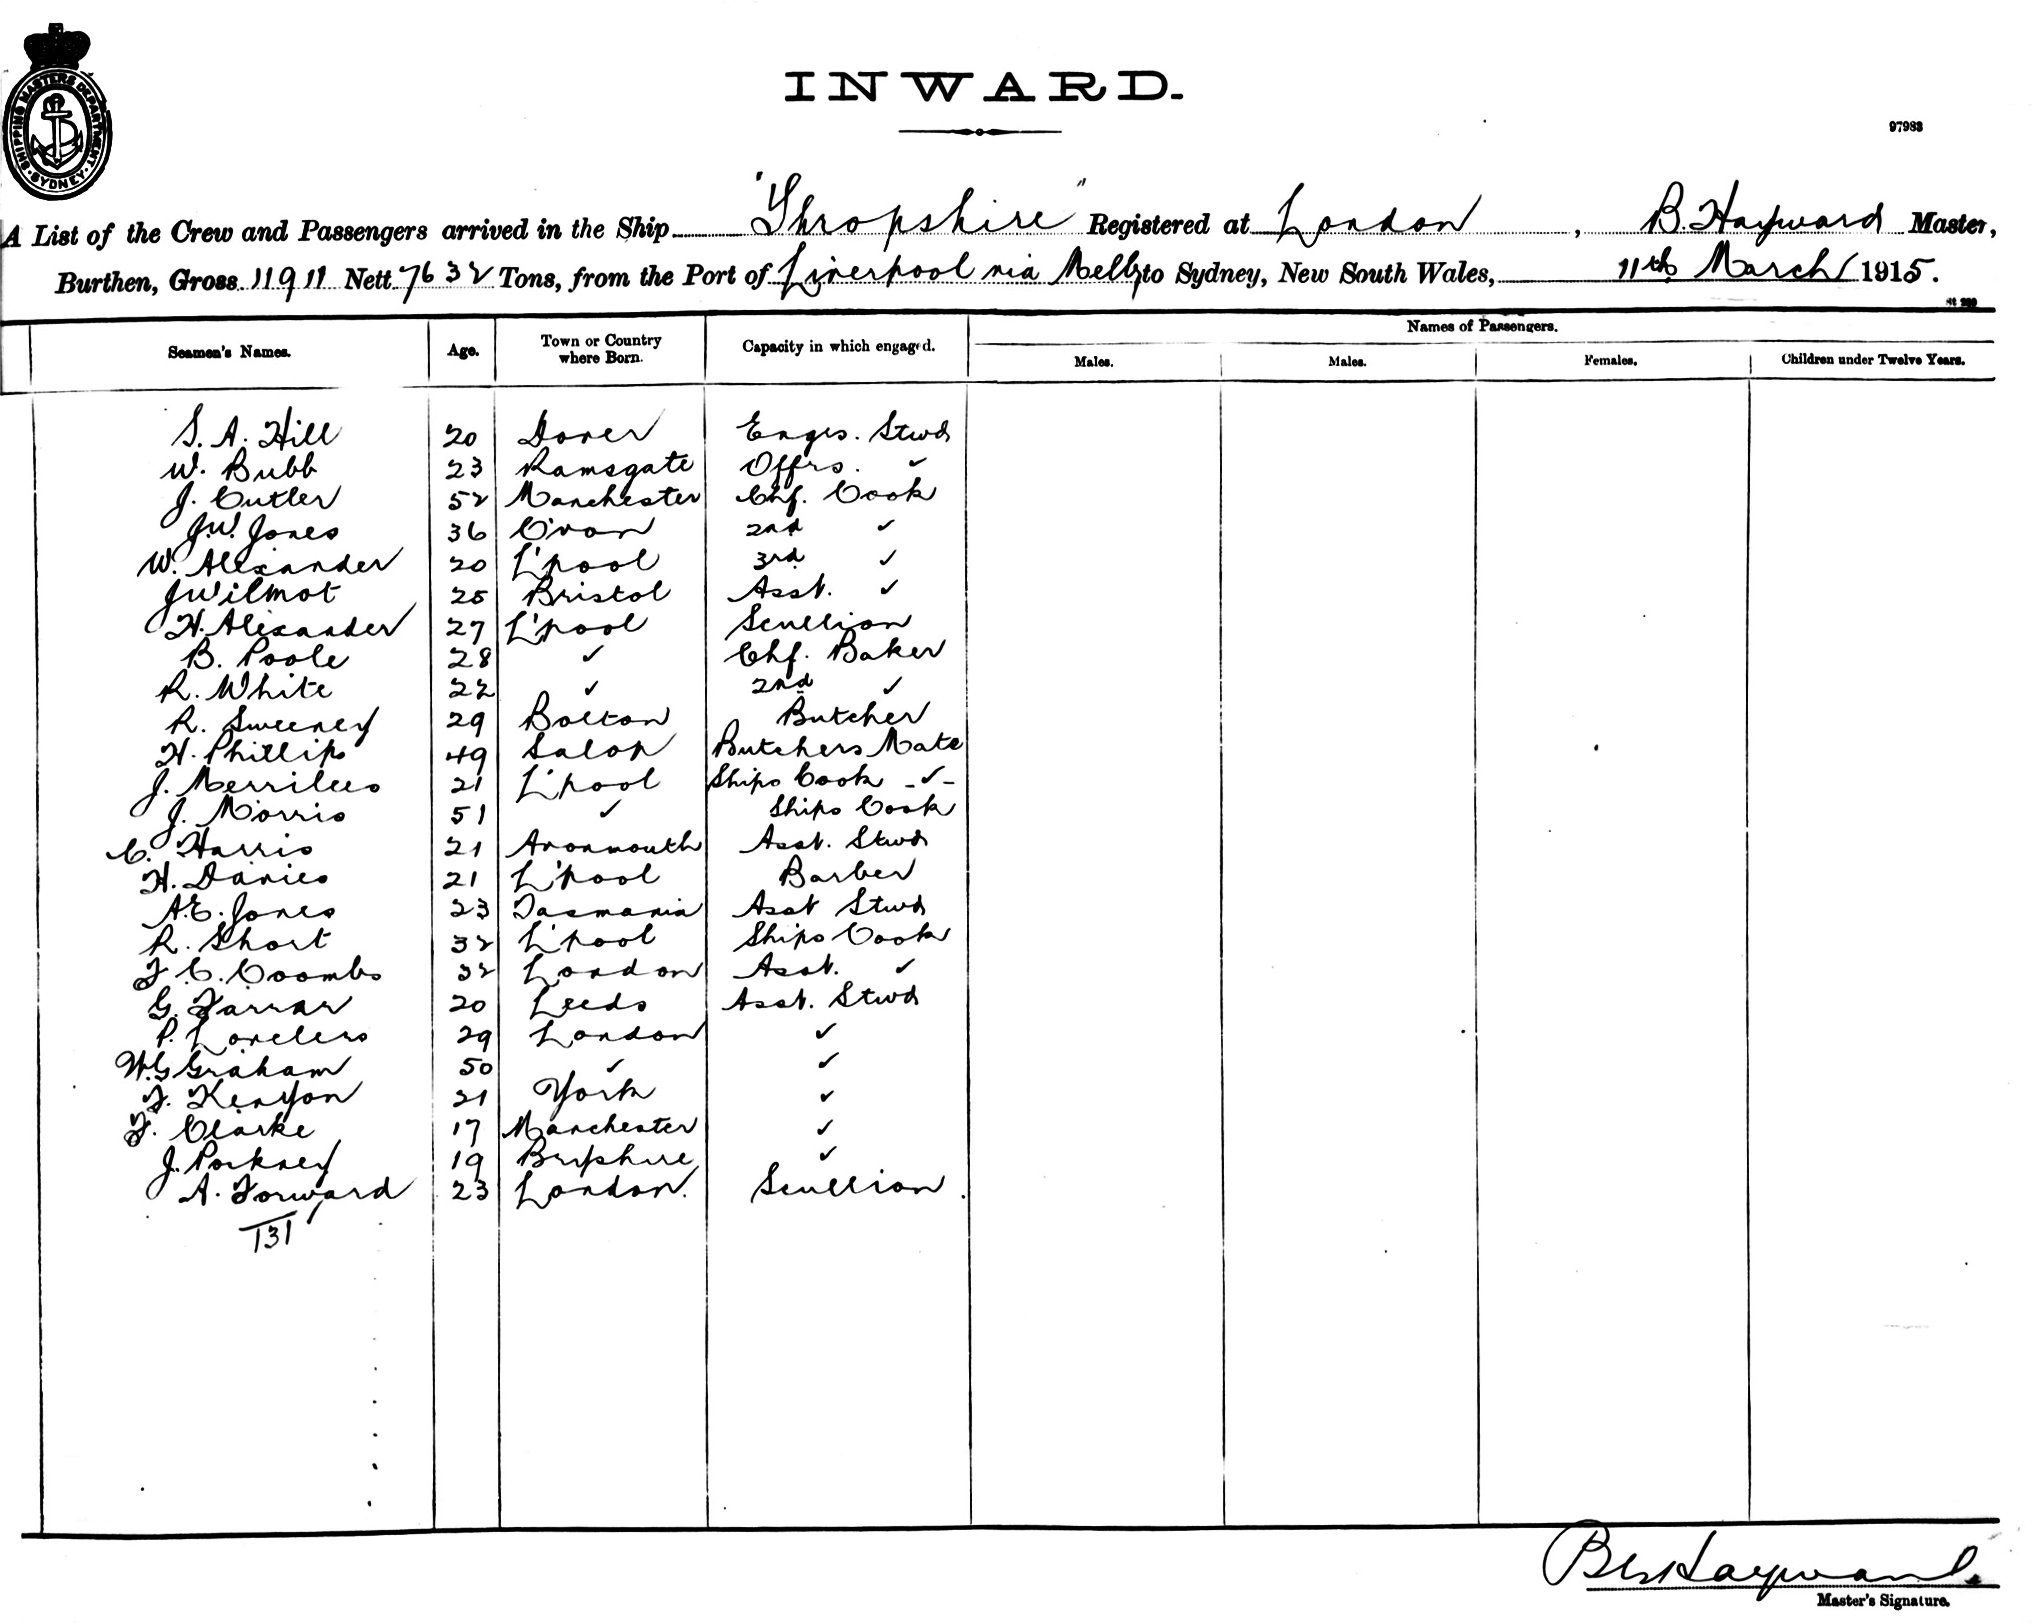 SHIPPING MASTERS DEPARTMENT · SYDNEY ·
INWARD.
97983
A List of the Crew and Passengers arrived in the Ship "Shropshire" Registered at London, B. Hayward Master,
Burthen, Gross 11911 Nett 7632 Tons, from the Port of Liverpool via Melb to Sydney, New South Wales, 11th March 1915.
Seamen's Names. Age. Town or Country where Born. Capacity in which engaged. Names of Passengers.
Males. Males. Females. Children under Twelve Years.
S. A. Hill 20 Dover Engrs. Stwd
W. Bubb 23 Ramsgate Offrs. ✓
J. Cutler 52 Manchester Chf. Cook
J.W. Jones 36 2nd ✓
W. Alexander 20 L'pool 3rd ✓
J Wilmot 25 Bristol Asst. ✓
H. Alexander 27 L'pool Scullion
B. Poole 28 ✓ Chf. Baker
R. White 22 ✓ 2nd ✓
R. Sweeney 29 Bolton Butcher
H. Phillips 49 Salop Butchers Mate
J. Merrilees 21 L'pool Ships Cook -✓-
J. Morris 51 ✓ Ships Cook
C. Harris 21 Avonmouth Asst. Stwd
H. Davies 21 L'pool Barber
A.E. Jones 23 Tasmania Asst Stwd
R. Short 32 L'pool Ships Cook
F. C. Coombs 32 London Asst. ✓
G. Farrar 20 Leeds Asst. Stwd
P. Loveless 29 London ✓
W.G Graham 50 ✓ ✓
F. Kenyon 21 York ✓
F. Clarke 17 Manchester ✓
J. 19 ✓
A. Forward 23 London. Scullion
131
B Hayward.
Master's Signature.